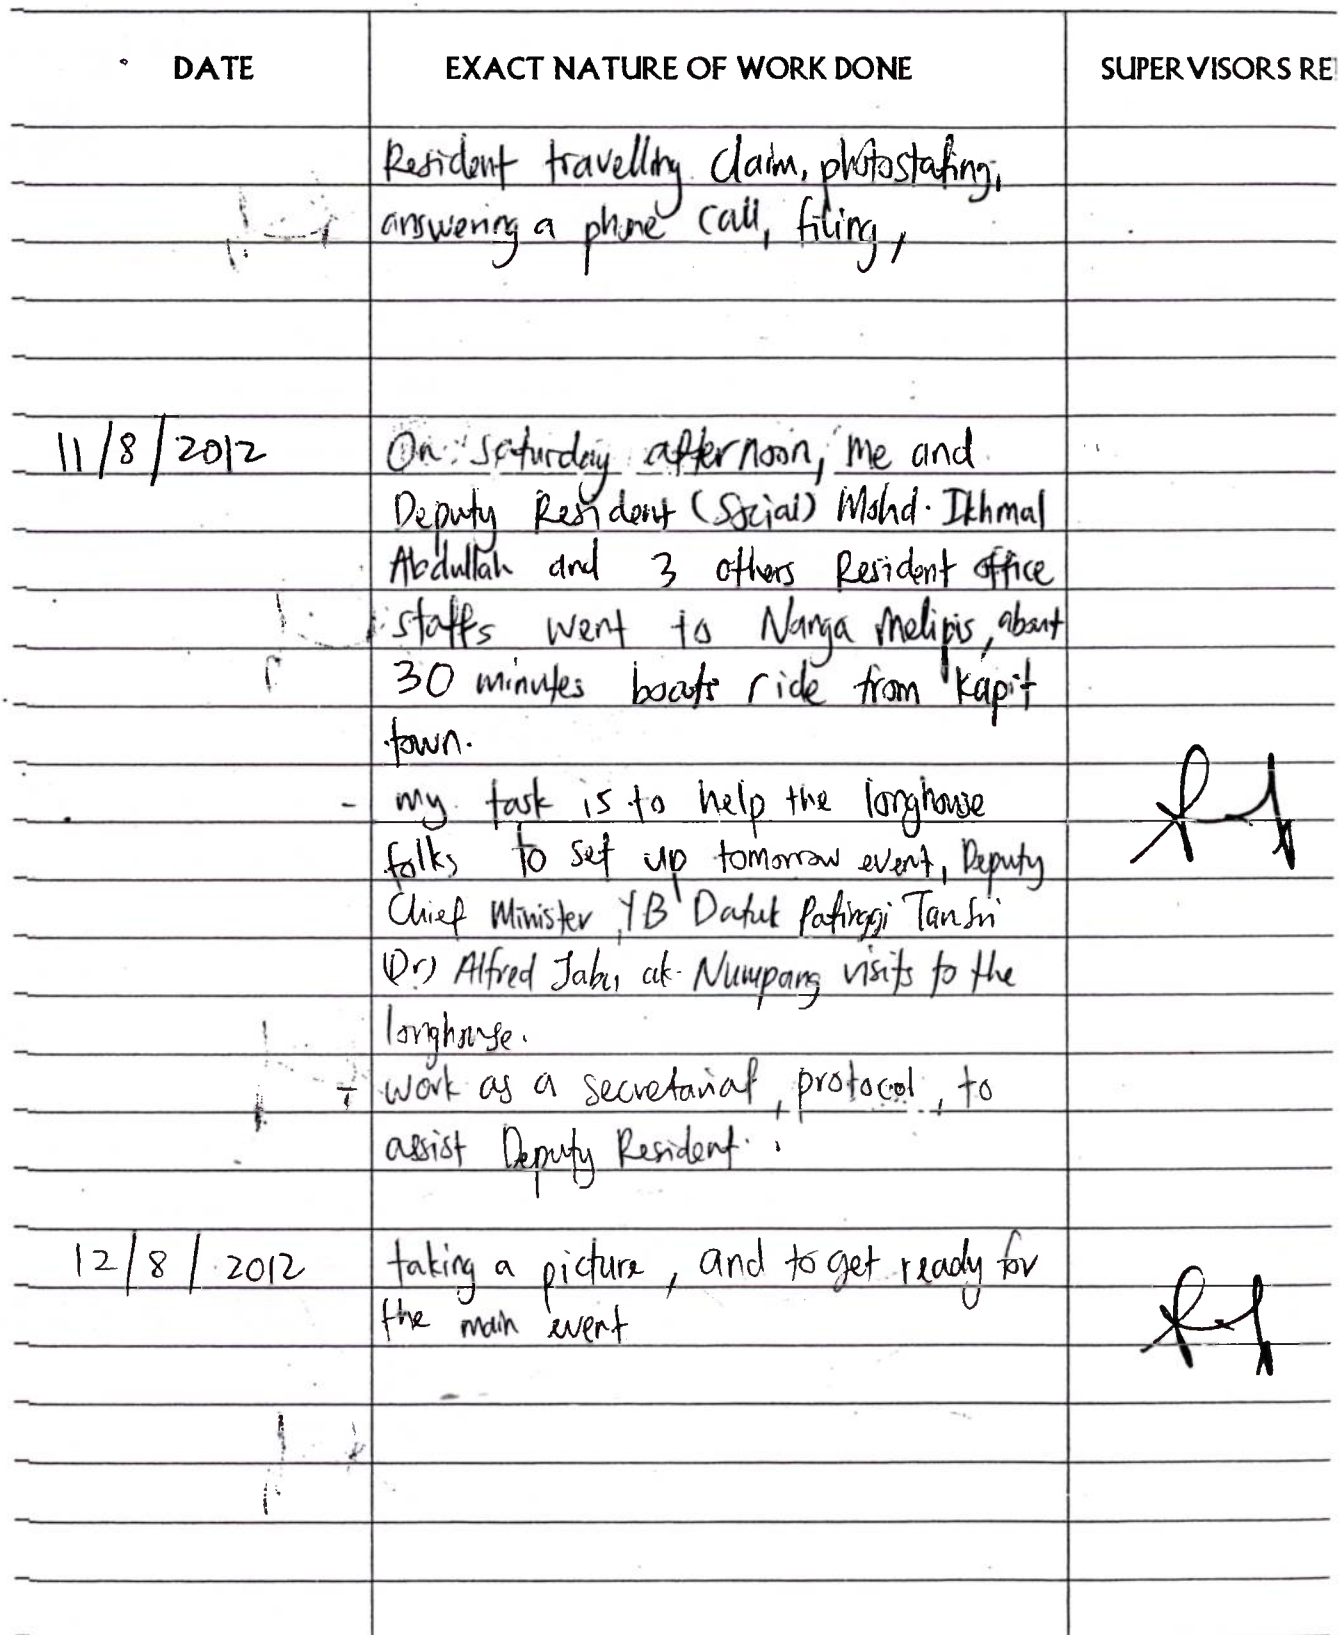 DATE EXACT NATURE OF WORK DONE SUPERVISORS RE
Resident travelling claim, photostating,
answering a phone call, filing,
11/8/2012 On Saturday afternoon, me and
Deputy Resident (Social) Mohd. Ikhmal
Abdullah and 3 others Resident office
staffs went to Nanga Melipis, about
30 minutes boats ride from Kapit
town.
- my task is to help the longhouse
folks to set up tomorrow event, Deputy
Chief Minister YB Datuk Patinggi Tan Sri
(Dr) Alfred Jabu ak Numpang visits to the
longhouse.
- work as a secretariat, protocol, to
assist Deputy Resident.
12/8/2012 taking a picture, and to get ready for
the main event